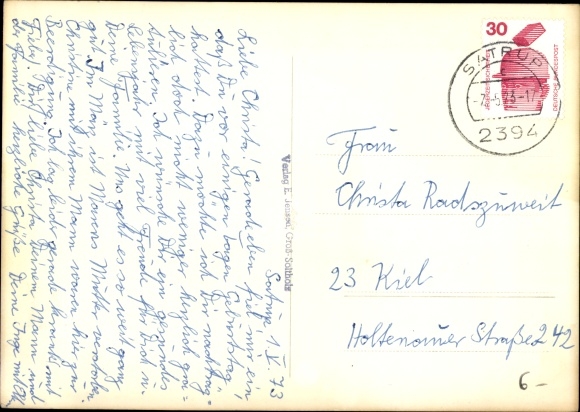 Satrup, 1.V. 73
Liebe Christa! Gerade eben fiel mir ein,
daß Du vor einigen Tagen Geburtstag
hattest. Dazu möchte ich Dir nachträg-
lich doch nicht weniger herzlich gra-
tulieren. Ich wünsche Dir ein gesundes
Lebensjahr mit viel Freude für Dich u.
Deine Familie. Uns geht es so weit ganz
gut. Im März ist Mamas Mutter verstorben.
Christine mit ihrem Mann waren hier zur
Beerdigung. Ich lag leider gerade krank mit
Fieber. Dir liebe Christa, Deinem Mann und
der Familie herzliche Grüße Deine Inge
Verlag E. Jensen, Groß-Solt
30
DEUTSCHE BUNDESPOST
SATRUP
2394
Frau
Christa Radszuweit
23 Kiel
Holtenauer Straße 242
6-